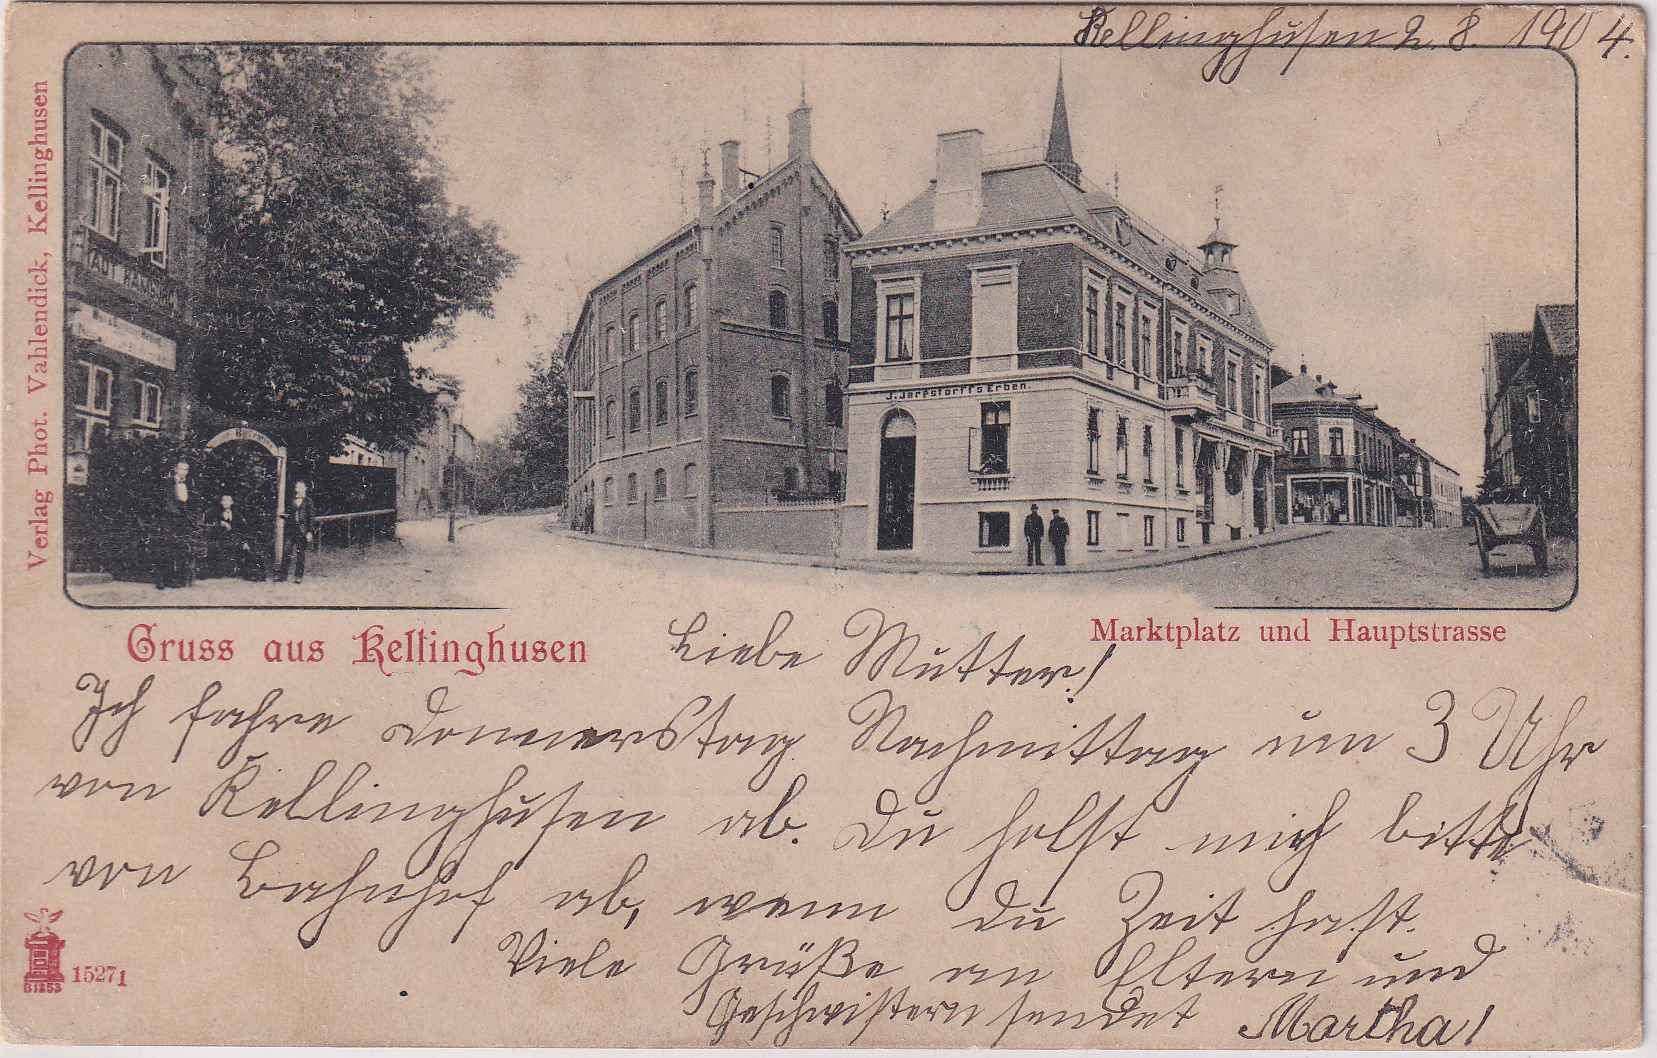 Kellinghusen 2.8.1904.
Verlag Phot. Vahlendick, Kellinghusen
J. Jargstorff's Erben.
Gruss aus Kellinghusen
Marktplatz und Hauptstrasse
Liebe Mutter!
Ich fahre Donnerstag Nachmittag um 3 Uhr
von Kellinghusen ab. Du holst mich bitte
von Bahnhof ab, wenn du Zeit hast.
Viele Grüße an Eltern und
Geschwistern sendet Martha!
15271